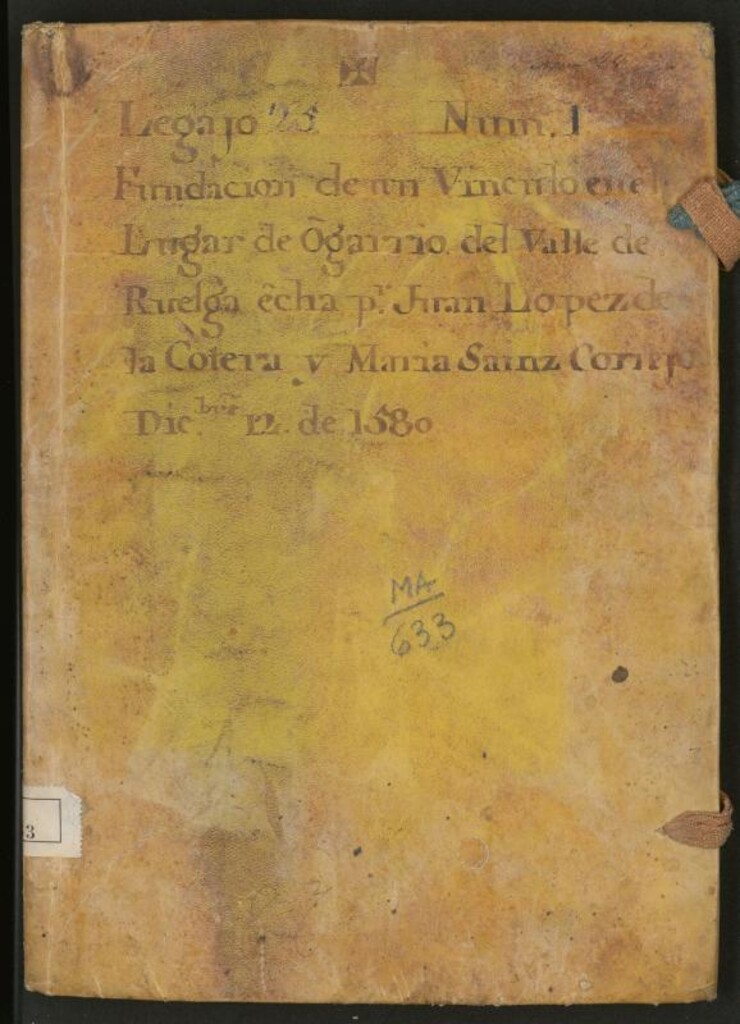 ✠
Legajo 25 Num. 1
Fundacion de un Vinculo en el
Lugar de Ôgarrio del Valle de
Ruesga êcha pr. Juan Lopez de
la Cotera y Maria Sainz Cornejo
Dicbre 12. de 1580
MA
633
3